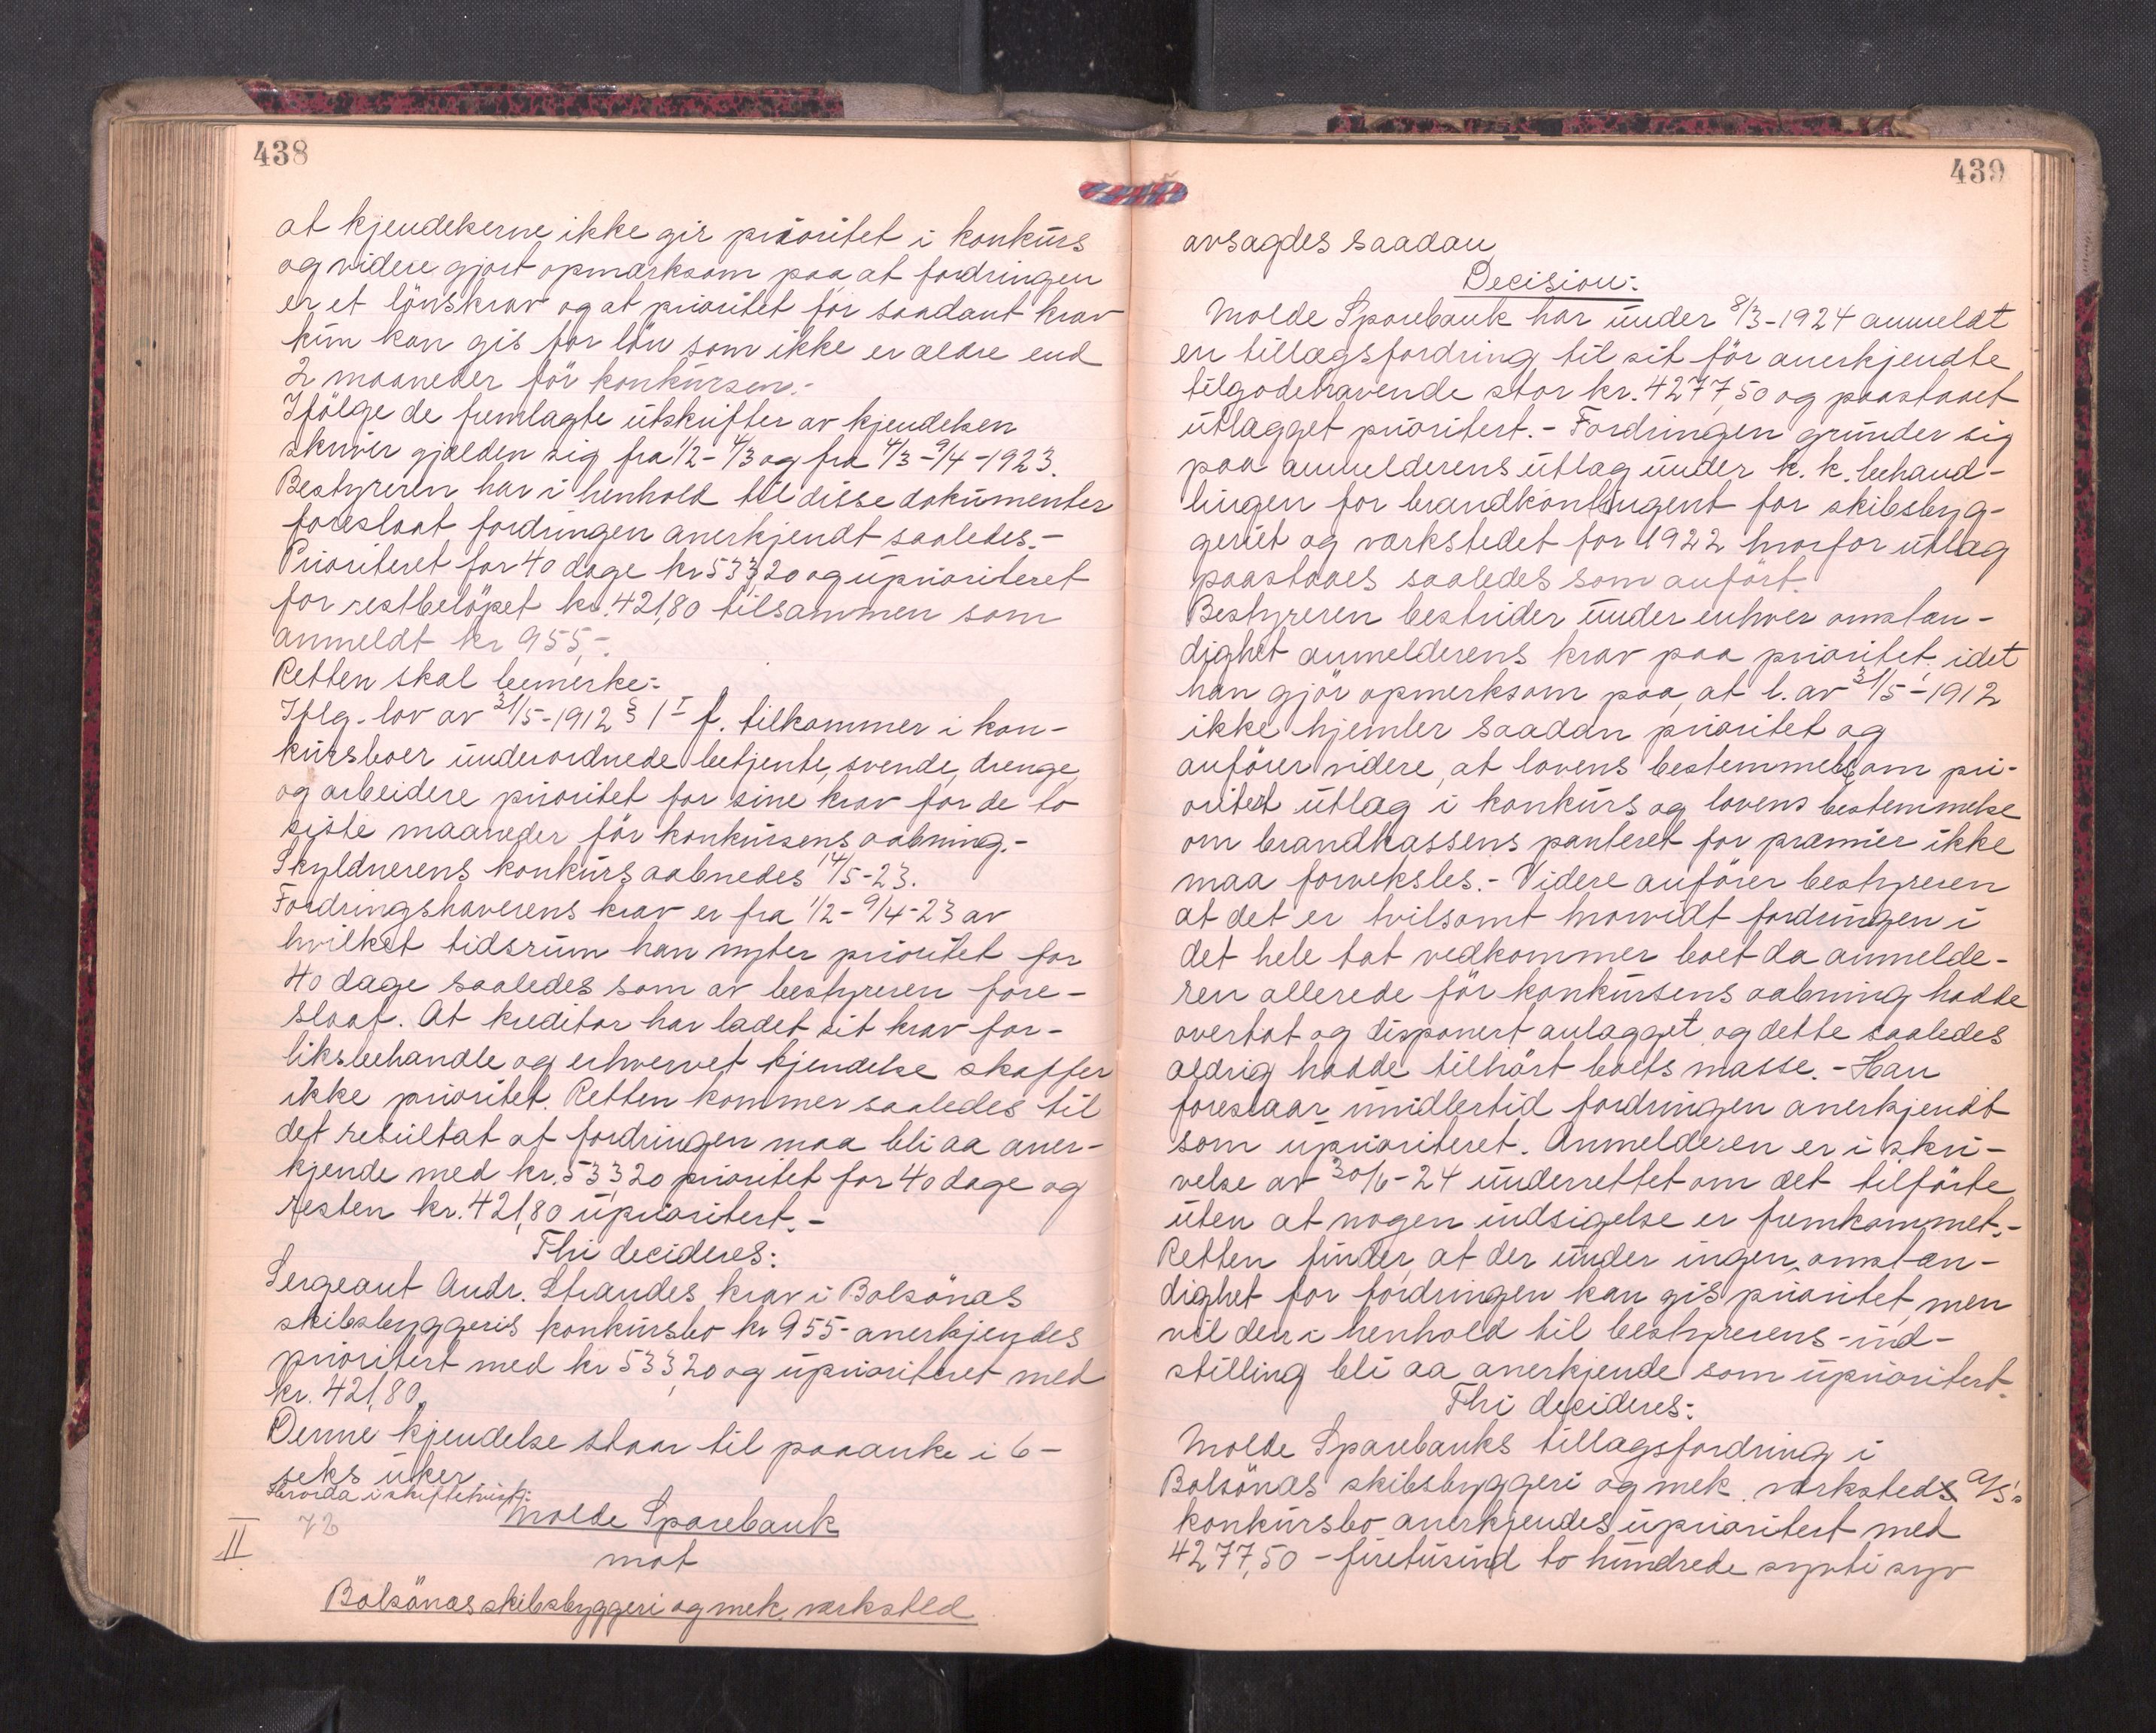 438
at kjendelserne ikke gir prioritet i konkurs
og videre gjort opmerksom paa at fordringen
er et lönskrav og at prioritet for saadant krav
kun kan gis for lön som ikke er ældre end
2 maaneder för konkursen.-
Ifölge de fremlagte utskrifter av kjendelsen
skriver gjælden sig fra 1/2 - 4/3 og fra 4/3 - 9/4 - 1923.
Bestyreren har i henhold til disse dokumenter
foreslaat fordringen anerkjendt saaledes.-
Prioriteret for 40 dage kr 533,20 og uprioriteret
for restbelöpet kr. 421,80 tilsammen som
anmeldt kr 955,-.
Retten skal bemerke:
Iflg. lov av 31/5-1912 § 1 I f. tilkommer i kon-
kursboer underordnede betjente, svende, drenge
og arbeidere prioritet for sine krav for de to
siste maaneder för konkursens aabning.-
Skyldnerens konkurs aabnedes 14/5-23.
Fordringshaverens krav er fra 1/2 - 9/4-23 av
hvilket tidsrum han nyter prioritet for
40 dage saaledes som av bestyreren fore-
slaat. At kreditor har ladet sit krav for-
liksbehandle og erhvervet kjendelse skaffer
ikke prioritet. Retten kommer saaledes til
det resultat at fordringen maa bli aa aner-
kjende med kr. 533,20 prioritet for 40 dage og
resten kr. 421,80 uprioritert.-
Thi decideres:
Sergeant Andr. Strandes krav i Bolsönes
skibsbyggeris konkursbo kr 955- anerkjendes
prioritert med kr 533,20 og uprioriteret med
kr. 421,80.
Denne kjendelse staar til paaanke i 6-
seks uker
II.
72
Molde Sparebank
mot
Bolsönes skibsbyggeri og mek. verksted
439
avsagdes saadan
Decision:
Molde Sparebank har under 8/3-1924 anmeldt
en tillægsfordring til sit för anerkjendte
tilgodehavende stor kr. 4277,50 og paastaaet
utlægget prioritert.- Fordringen grunder sig
paa anmelderens utlæg under k. k. behand-
lingen for brandkontingent for skibsbyg-
geriet og verkstedet for 1922 hvorfor utlæg
paastaaes saaledes som anfört.
Bestyreren bestrider under enhver omstæn-
dighet anmelderens krav paa prioritet, idet
han gjör opmerksom paa, at l. av 31/5-1912
ikke hjemler saadan prioritet og
anförer videre, at lovens bestemmelse om pri-
oritert utlæg i konkurs og lovens bestemmelse
om brandkassens panteret for præmier ikke
maa forveksles.- Videre anförer bestyreren
at det er tvilsomt hvorvidt fordringen i
det hele tat vedkommer boet da anmelde-
ren allerede för konkursens aabning hadde
overtat og disponert anlægget og dette saaledes
aldrig hadde tilhört boets masse.- Han
foreslaar imidlertid fordringen anerkjendt
som uprioriteret. Anmelderen er i skri-
velse av 30/6-24 underrettet om det tilförte
uten at nogen indsigelse er fremkommet.-
Retten finder, at der under ingen omstæn-
dighet for fordringen kan gis prioritet, men
vil den i henhold til bestyrerens ind-
stilling bli aa anerkjende som uprioritert.
Thi decideres:
Molde Sparebanks tillægsfordring i
Bolsönes skibsbyggeri og mek. verksteds A/S's
konkursbo anerkjendes uprioritert med
4277,50 - firetusind to hundrede sytti syv